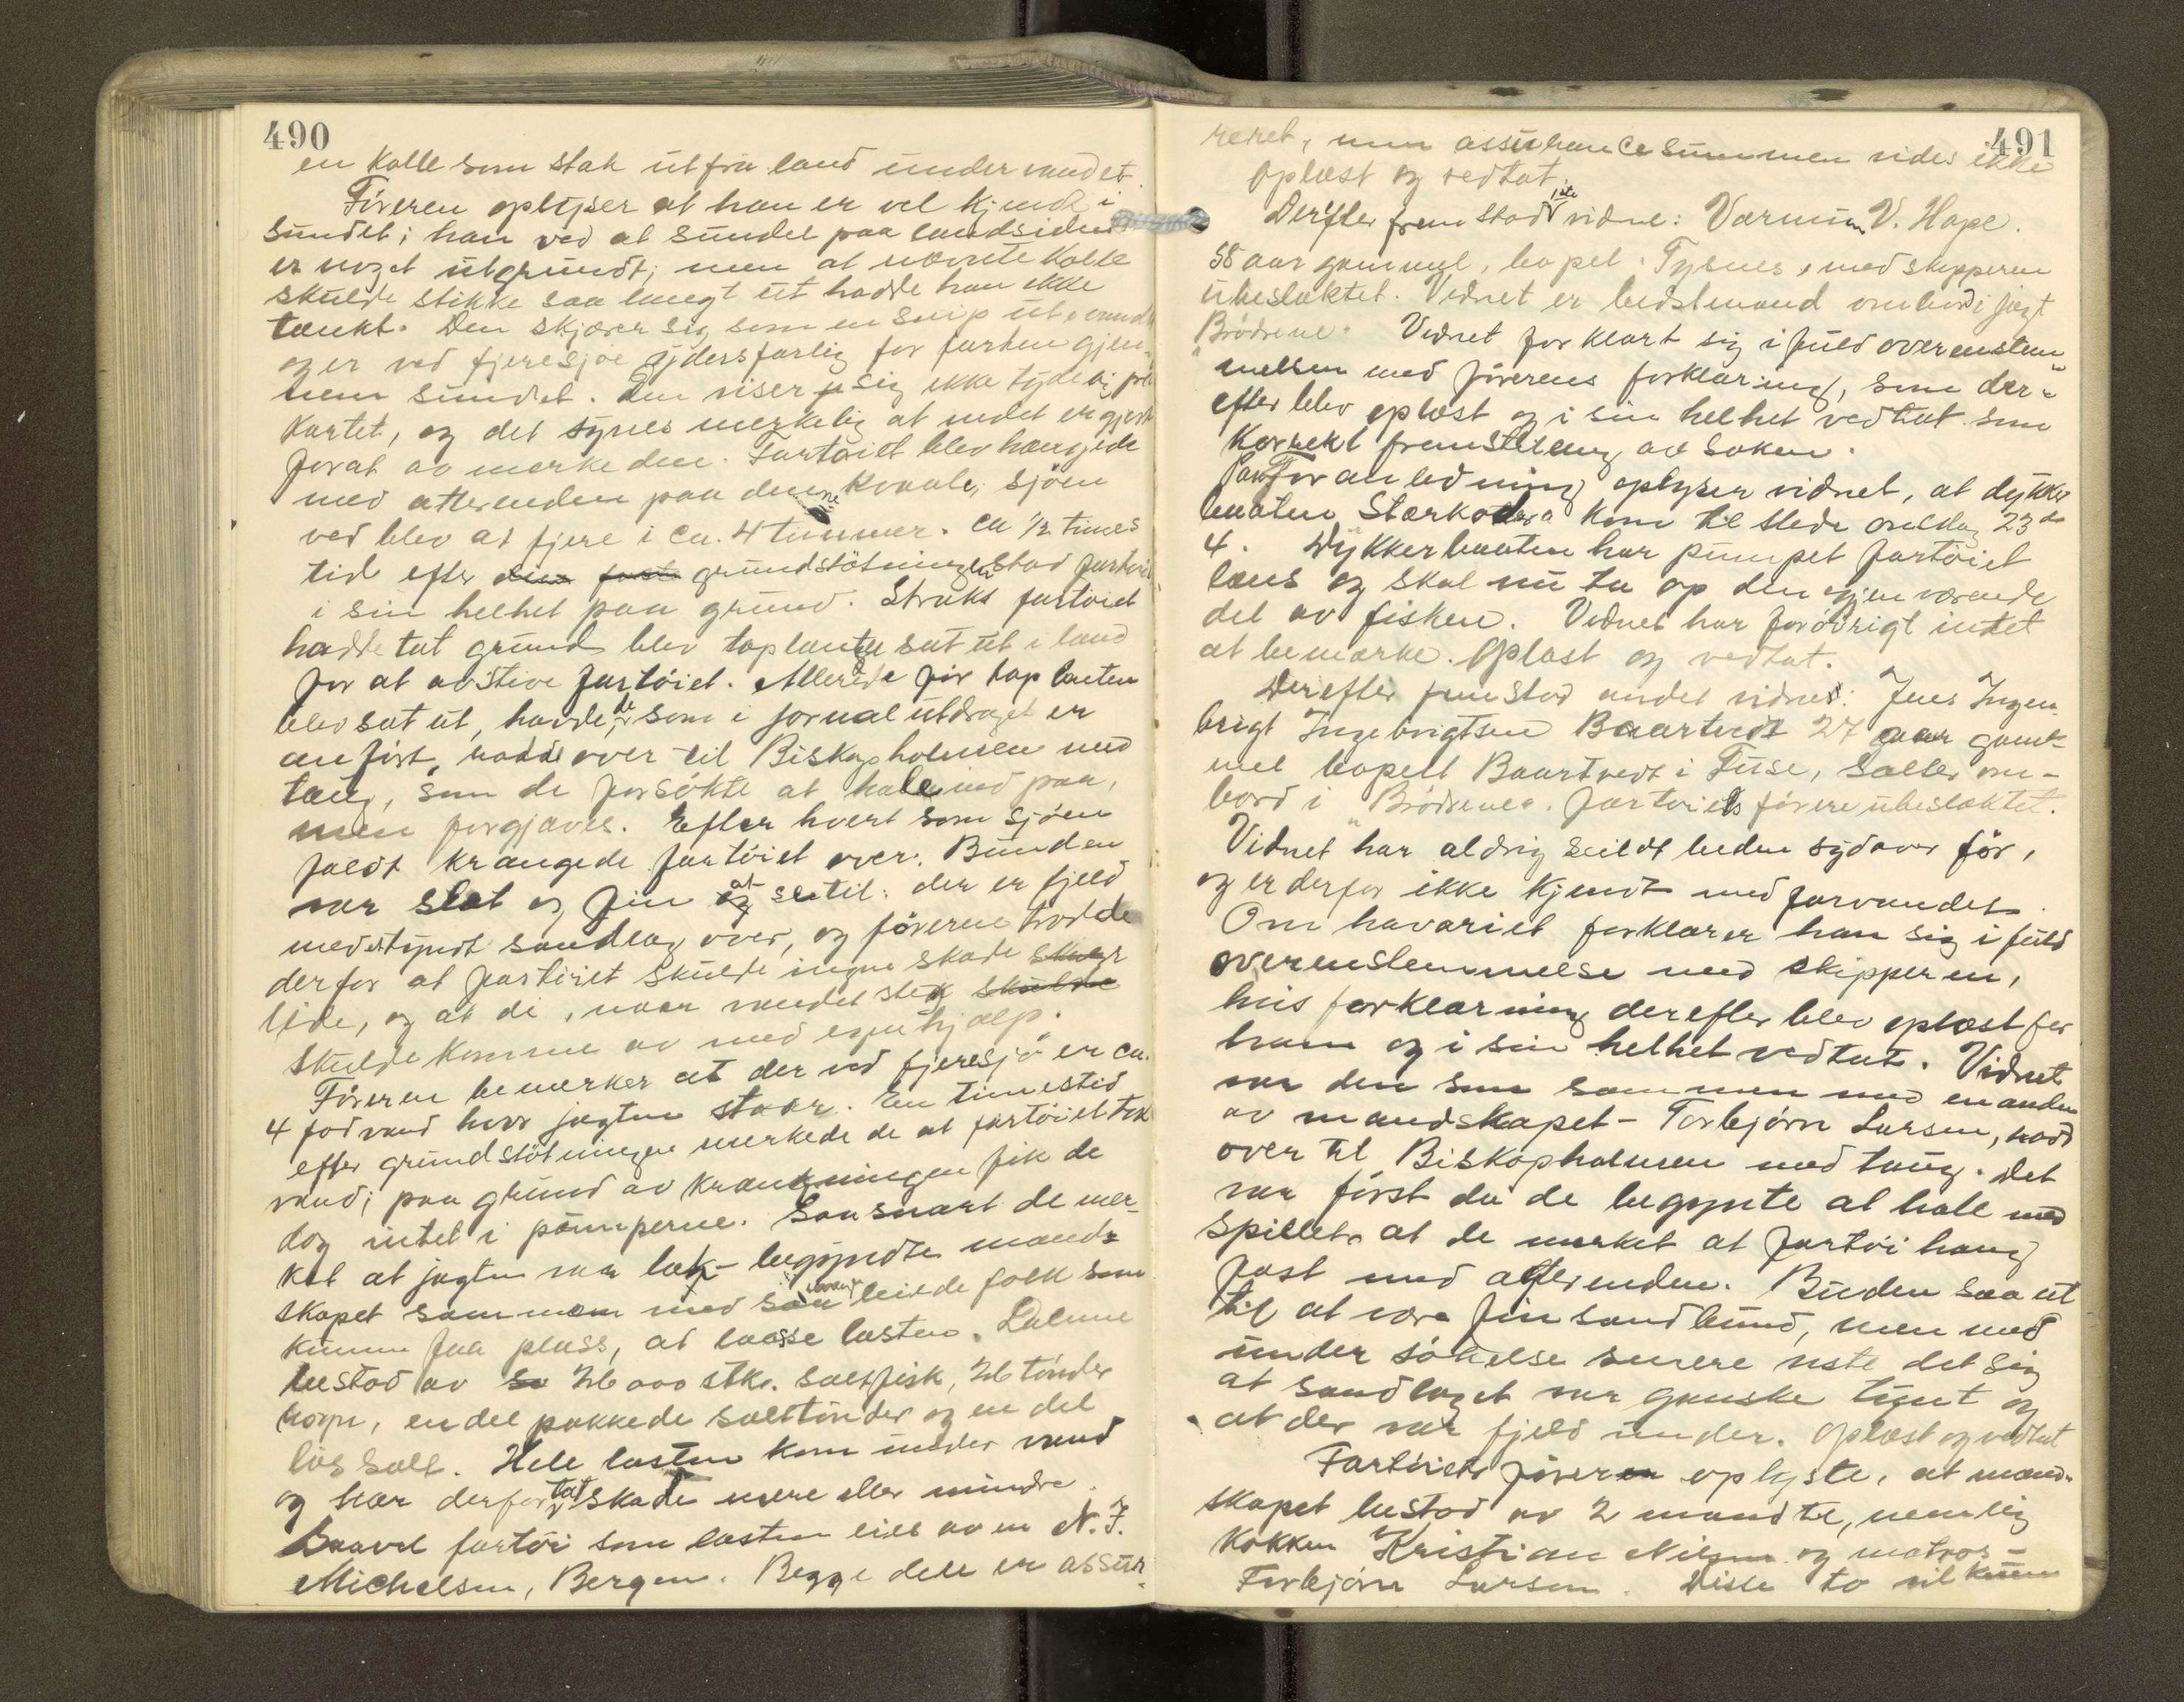 490
en Kolle som stak ut fra land under vandet.
Føreren oplyser at han er vel kjendt i
sundet; han ved at sundet paa landsiden
er noget utgrundt; men at nævnte Kolle
skulde stikke saa langt ut hadde han ikke
tænkt. Den skjærer sig som en snip ut
og er ved fjæresjøe yderst farlig for farten gjen-
nem sundet. Den viser sig ikke tydelig paa
Kartet, og det synes merkelig at intet er gjort
for at av merke den. Fartøiet blev hængende
med atterenden paa denne Kraale; sjøen
ved blev at fjere i ca. 4 timmer. Ca 1/2 times
tid efter grundstøtningen stod fartøiet
i sin helhet paa grund. Straks fartøiet
hadde tat grund blev taplanke sat ut i land
for at avstive fartøiet. Allerede før tap lanken
blev sat ut, havde de, som i jornalutdraget er
anført, rodd over til Biskopsholmen med
taug, som de forsøkte at hale ind paa,
men forgjæves. Efter hvert som sjøen
faldt krængede fartøiet over. Bunden
var slat og fin at se til: der er fjeld
med et tyndt sandlag over, og førerne trodde
derfor at fartøiet skulde ingen skade
lide, og at de, naar vandet steg
skulde komme av med egen hjælp.
Føreren bemerker at der ved fjæresjø er ca.
4 fod vand hvor jagten staar. En timestid
efter grundstøtningen merkede de at fartøiet tok
vand; paa grund av krængningen fik de
dog intet i pomperne. Saasnart de mer-
ket at jagten var læk begyndte mand-
skapet sammen med saa mange leiede folk som
kunne faa plass, at losse lasten. Denne
bestod av 26000 stk. saltfisk, 26 tønder
rogn, en del pakkede salttønder og en del
løs salt. Hele lasten kom under vand
og har derfor tat skade mere eller mindre.
Saavel fartøi som lasten eies av en N. J.
Michelsen, Bergen. Begge dele er assur-
491
reret, men assuranse summen vides ikke
Oplæst og vedtat.
Derefter frem stod 1ste vidne: Værmun V. Hope.
58 aar gammel, bopel Tysnes, med skipperen
ubeslæktet. Vidnet er bedstemand ombord i jagt
"Brødrene". Vidnet forklart sig i fuld overenstem-
melsen med førerens forklaring, som der-
efter blev oplæst og i sin helhet vedtat som
korrekt fremstilling av saken.
Paa Foranledning oplyser vidnet, at dykker
baaten Stærkodder kom til stede onsdag 23de
4. Dykkerbaaten har pumpet fartøiet
læns og skal nu ta op den gjenværende
del av fisken. Vidnet har forøvrigt intet
at bemerke. Oplæst og vedtat.
Derefter fremstod andet vidne: Jens Ingem
brigt Ingebrigtsen Baartvedt 27 aar gam-
mel bopell Baartvedt i Fuse, salter om-
bord i "Brødrene". Fartøiets førere ubeslæktet.
Vidnet har aldrig seildt leden sydover før,
og er derfor ikke kjendt med farvandet.
Om havariet forklarer han sig i fuld
overenstemmelse med skipperen,
hvis forklaring derefter blev oplæst for
ham og i sin helhet vedtat. Vidnet
var den som sammen med en anden
av mandskapet - Torbjørn Larsen, rodd
over til Biskopholmen med taug. Det
var først da de begynte at hale med
spillet at de merket at fartøi hang
fast med atterenden. Bunden saa ut
til at være fin sandbund, men med
under søkelse senere viste det sig
at sandlaget var ganske tynt og
at der var fjeld under. Oplæst og vedtat
Fartøiets fører oplyste, at mand-
skapet bestod av 2 mand til, nemlig
Kokken Kristian Nilsen og matros-
Torbjørn Larsen. Disse to vil kunn